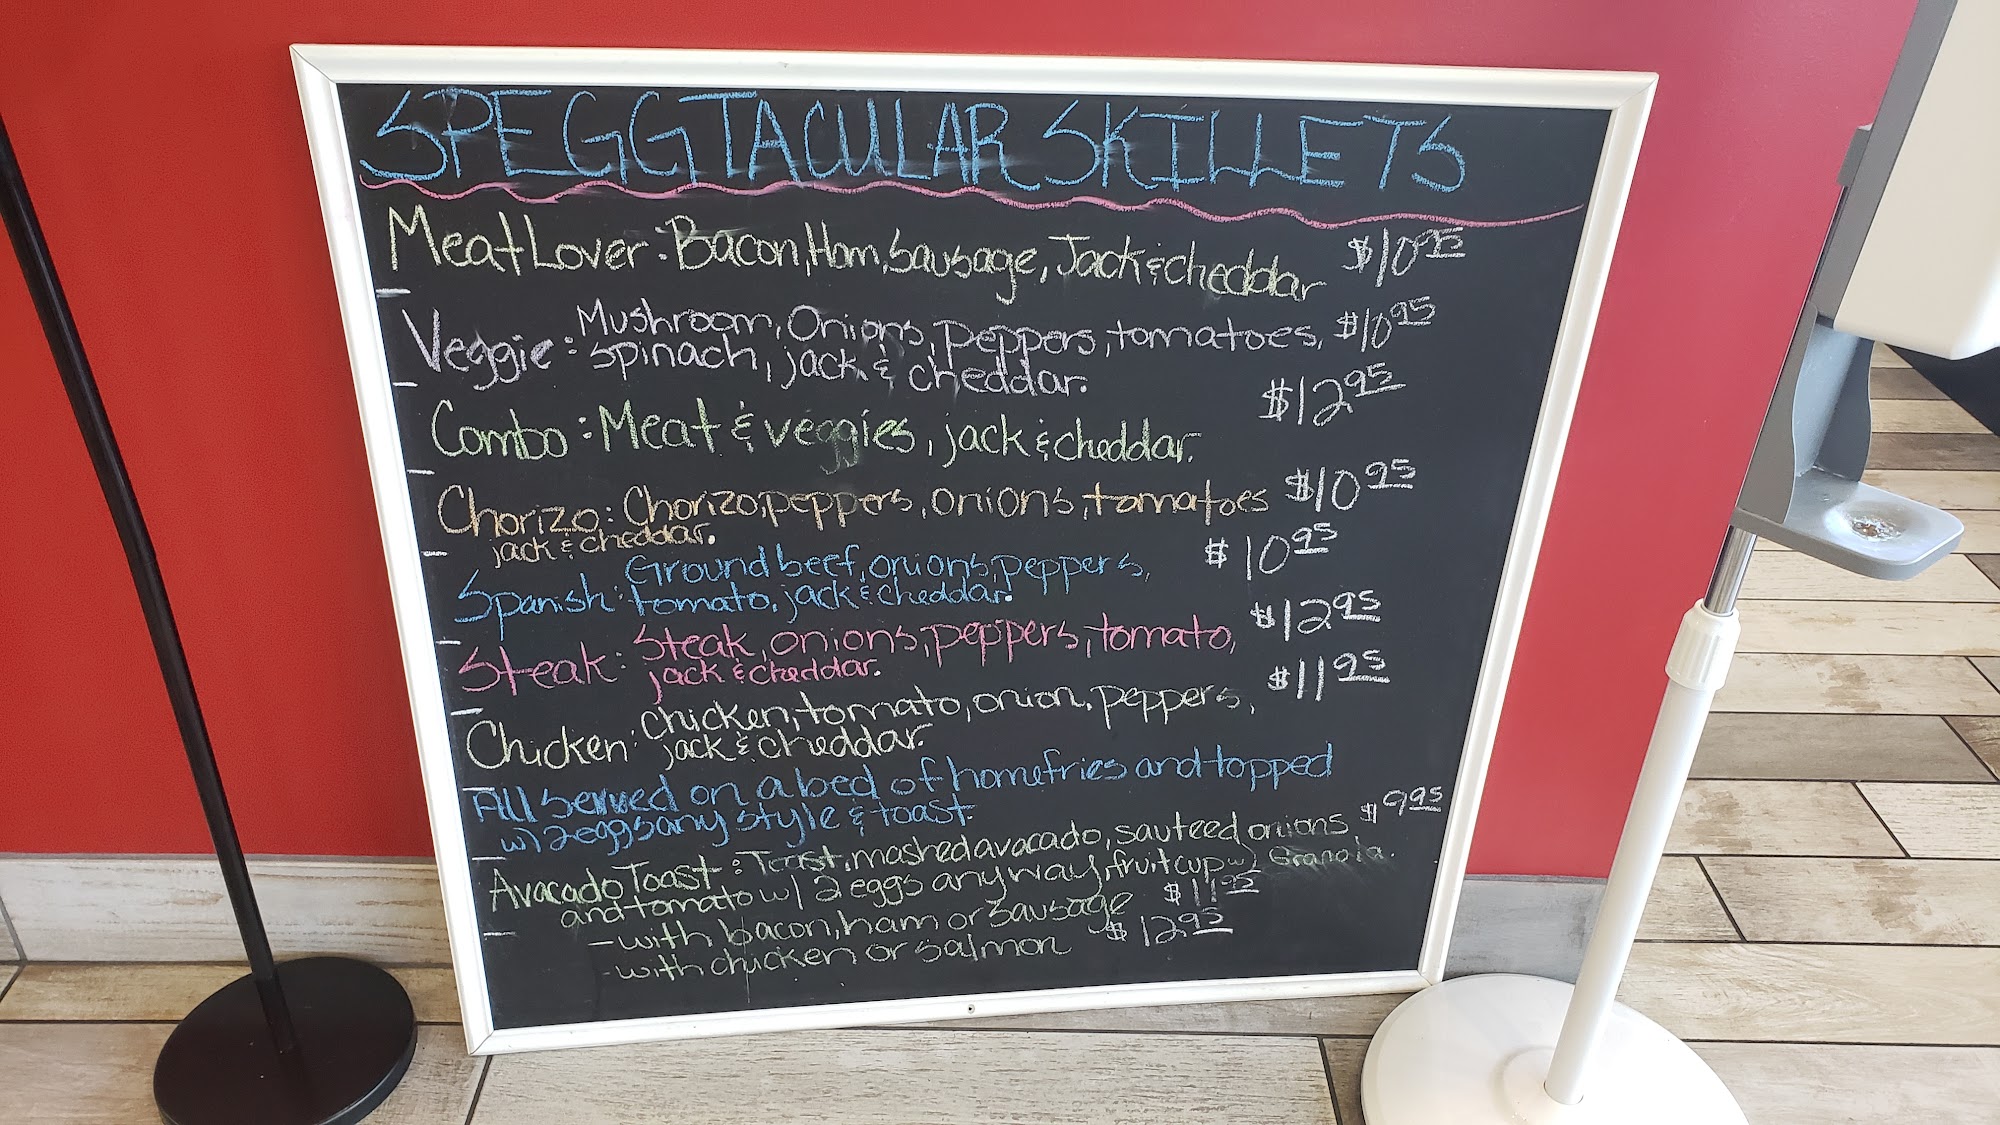 SPEGGTACULAR SKILLETS
Meat Lover: Bacon, Ham, Sausage, Jack & cheddar $10.95
Veggie: Mushroom, Onions, Peppers, tomatoes, $10.95
spinach, jack & cheddar.
Combo: Meat & veggies, jack & cheddar. $12.95
Chorizo: Chorizo, peppers, onions, tomatoes $10.95
jack & cheddar.
Spanish: Ground beef, onions, peppers, $10.95
tomato, jack & cheddar.
Steak: Steak, onions, peppers, tomato, $12.95
jack & cheddar.
Chicken: chicken, tomato, onion, peppers, $11.95
jack & cheddar.
All Served on a bed of homefries and topped
w/ 2 eggs any style & toast.
Avacado Toast: Toast, mashed avacado, sauteed onions $9.95
and tomato w/ 2 eggs anyway, fruit cup w/ Granola.
- with bacon, ham or sausage $11.95
- with chicken or salmon $12.95